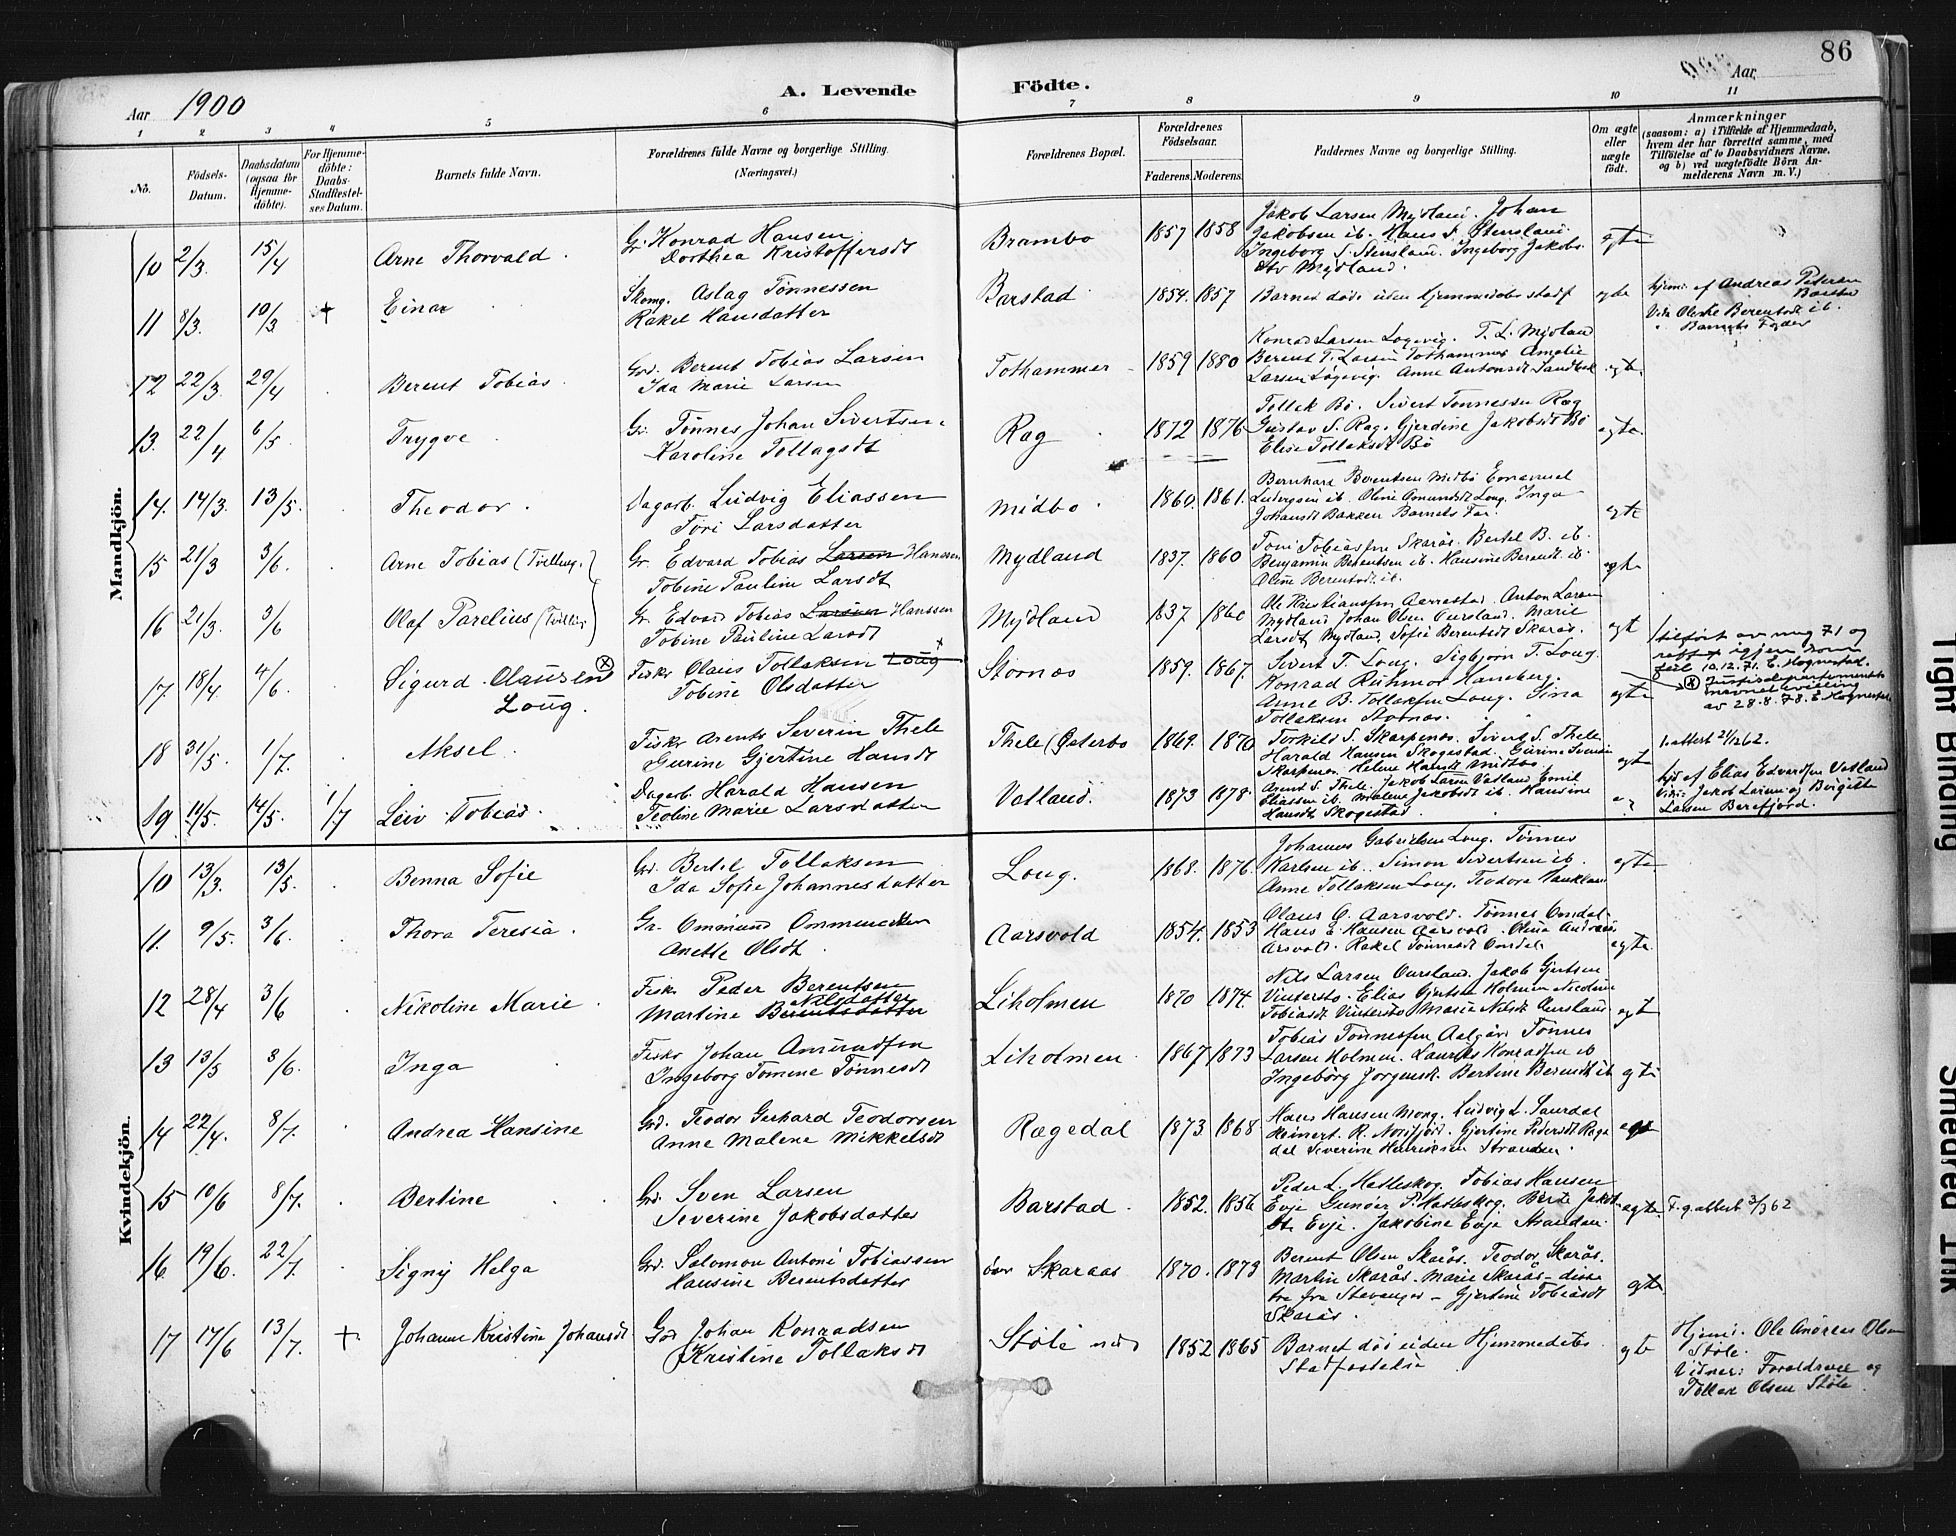 86
Aar 1900
A. Levende Födte.
Aar
1 2 3 4 5 6 7 8 9 10 11
No.
Födsels-Datum.
Daabsdatum (ogsaa for Hjemme-döbte).
For Hjemme-döbte: Daabs-Stadfæstel-ses Datum.
Barnets fulde Navn.
Forældrenes fulde Navne og borgerlige Stilling.
(Næringsvei.)
Forældrenes Bopæl.
Forældrenes Födselsaar.
Faderens. Moderens.
Faddernes Navne og borgerlige Stilling.
Om ægte eller uægte födt.
Anmærkninger
(saasom: a) i Tilfælde af Hjemmedaab, hvem der har forrettet samme, med Tilföielse af to Daabsvidners Navne, og b) ved uægtefödte Börn An-melderens Navn m. V.)
Mandkjön.
10 2/3. 15/4 Arne Thorvald. Gr. Konrad Hansen
Dorthea Kristoffersdt
Brambo 1857 1858 Jakob Larsen Mydland. Johan
Jakobsen ib. Hans S. Stensland.
Ingeborg S. Stensland. Ingeborg Jakobs
dtr Mydland. egte
11 8/3. 10/3 + Einar Aslag Tönnessen
Rakel Hansdatter
Barstad 1854. 1857 Barnet döde uden Hjemmedobs stadf egte
hjem. af Andreas Petersen
Barstad
Vidn Berentsdt ib.
Barnets Fader
12 22/3. 29/4 Berent Tobias. Grd. Berent Tobias Larsen
Ida Marie Larsen
Tothammer 1859 1880 Konrad Larsen Logevig. T. L. Mydland
Berent T. Larsen Tothammer Amalie
Larsen Logevig. Anne Antonsdt Sandbek egte
13. 22/4 6/5. Trygve Gr. Tönnes Johan Sivertsen.
Karoline Tollagsdt
Rag 1872 1876 Tollak Bö. Sivert Tonnessen Rag
Gustav S. Rag. Gjerdine Jakobsdt Bö
Elise Tollaksdt Bö egte
14. 14/3. 13/5. Theodor. Dagarb. Ludvig Eliassen
Tori Larsdatter
Midbo 1860. 1861. Bernhard Berentsen Midbö Emanuel
Ludvigsen ib. Oline Omundsdt Loug. Inga
Johansdt Bakken Barnets Far egte
15 21/3 3/6. Arne Tobias (Tvilling.) Gr. Edvard Tobias Larsen Hanssen
Tobine Pauline Larsdt
Mydland 1837. 1860 Toni Tobiasfen Skarås. Bertel B. ib.
Benjamin Berentsen ib. Hansine Berentdt. ib.
Oline Berentsdt ib. egte
16 21/3. 3/6 Olaf Parelius (Tvilling) Gr. Edvard Tobias Larsen Hanssen
Tobine Pauline Larsdt
Mydland 1837 1860 Ole Kristiansfen Aarrestad. Anton Larsen
Mydland Johan Olsen Oursland. Marie
Larsdt Mydland. Sofie Berentsdt Skarås. egt
17 18/4 4/6. Sigurd Olausen
Loug. Fiskr Olaus Tollaksen Loug
Tobine Olsdatter
Stornes 1859. 1867. Sivert T. Loug. Sigbjörn T. Loug.
Konrad Hansberg.
Anne B. Tollaksen Loug. Sina
Tollaksen Stornes. egte
tilfört av meg 71 og
igjen som
feil 10.12.71. E. Hognestad.
Justisdepartementets
navnebevilling
av 28.8.78. E. Hognestad
18 31/5. 1/7. Aksel. Fiskr Arents Severin Thele
Gurine Gjertine Hansdt
Thele (Österbo 1869. 1870 Torkild S. Skarpenes. Sivert S. Thele
Harald Hansen Skogestad. Gurine Svendsen
Skarpenes. Helene Hansdt Midbö. egt
1. attest 21/1262.
19 11/5. 14/5. 1/7 Leiv Tobias. Dagarb Harald Hansen
Teoline Marie Larsdatter
Vatland. 1873 1878. Arent S. Thele. Jakob Larsen Vatland Emil
Eliassen ib. Malene Jakobsdt ib. Hansine
Hansdt Skogestad.
hjd af Elias Edvardsen Vatland
Vidn: Jakob Larsen og Birgitte
Larsen Berefjord.
Kvindekjön.
10 13/3. 13/5. Benna Sofie Grd. Bertel Tollaksen
Ida Sofie Johannesdatter
Loug. 1868. 1876. Johannes Gabrielsen Loug. Tönnes
Karlsen ib. Simon Sivertsen ib.
Anne Tollaksen Loug. Teodora Haukland egte
11. 9/5. 3/6. Thora Teresia. Gr. Ommund Ommundsen
Anette Olsdt
Aarsvold 1854. 1853 Olaus O. Aarsvold. Tönnes Omdal.
Hans A. Hansen Aarsvold. Olina Andreas
Arsvold. Rakel Tönnesdt Omdal egte
12 28/4 3/6 Nikoline Marie Fiskr Peder Berentsen
Martine Berentsdatter Nilsdatter
Liholmen 1870 1874. Nils Larsen Oursland. Jakob Gjertsen
Vintersto. Elias Gjertsen Holmen Nicoline
Tobiasdt Vintersto Marie Nilsdt Oursland egt
13 13/5 3/6. Inga Fiskr Johan Amundsen
Ingeborg Tomine Tönnesdt
Liholmen. 1867 1873 Tobias Tönnessen Aalgård Tönnes
Larsen Holmen. Laurits Konradsen ib
Ingeborg Jorgensdt. Bertine Berentdt ib egte
14 22/4. 8/7. Andrea Hansine Grd. Teodor Gerhard Teodorsen
Anne Malene Mikkelsdt
Rægedal 1873 1868 Hans Hansen Mong. Ludvig L. Saurdal
Reinert. R. Nordfjord. Gjertine Pedersdt Rage
dal Severine Henriksen Stranden. egt
15 10/6 8/7. Bertine Grd. Sven Larsen
Severine Jakobsdatter
Barstad. 1852. 1856 Peder L. Hatleskog. Tobias Hansen
Evje Gunder P. Hatleskog. Berte Jakobs
dt. Evje. Jakobine Evje Stranden. egte F. g. attest 3/3 62
16 19/6. 22/7. Signy Helga Grd. Salomon Antoni Tobiassen
Hansine Berentsdatter
övr Skaraas 1870. 1873 Berent Olsen Skarås. Teodor Skarås.
Martin Skarås. Marie Skarås - disse
tre fra Stavanger - Gjertine Tobiasdt
Skarås. egte
17 17/6 13/7. +. Johanne Kristine Johansdt Grd Johan Konradsen
Kristine Tollaksdt
Stöle ned 1852 1865 Barnet döi uden Hjemmedöbs
Stadfæstelse egte
Hjemd. Ole Andreas Olsen
Stöle.
Vidner: Foraldrene og
Tollak Olsen Stöle
Tight Binding
Smeared Ink